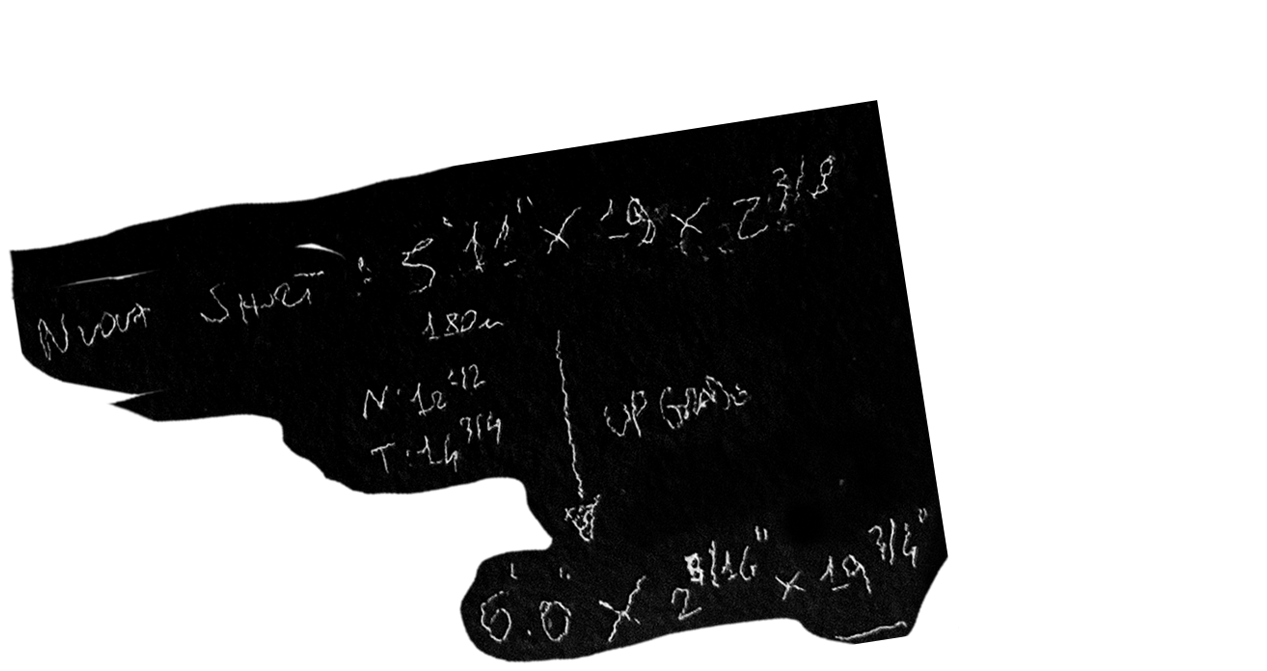 NUOVA SHORT : 5'11" X 19 X 2 3/8
180
N: 12
T: 14 3/4
UPGRADE
6'.0" X 2 /16" X 19 3/4"